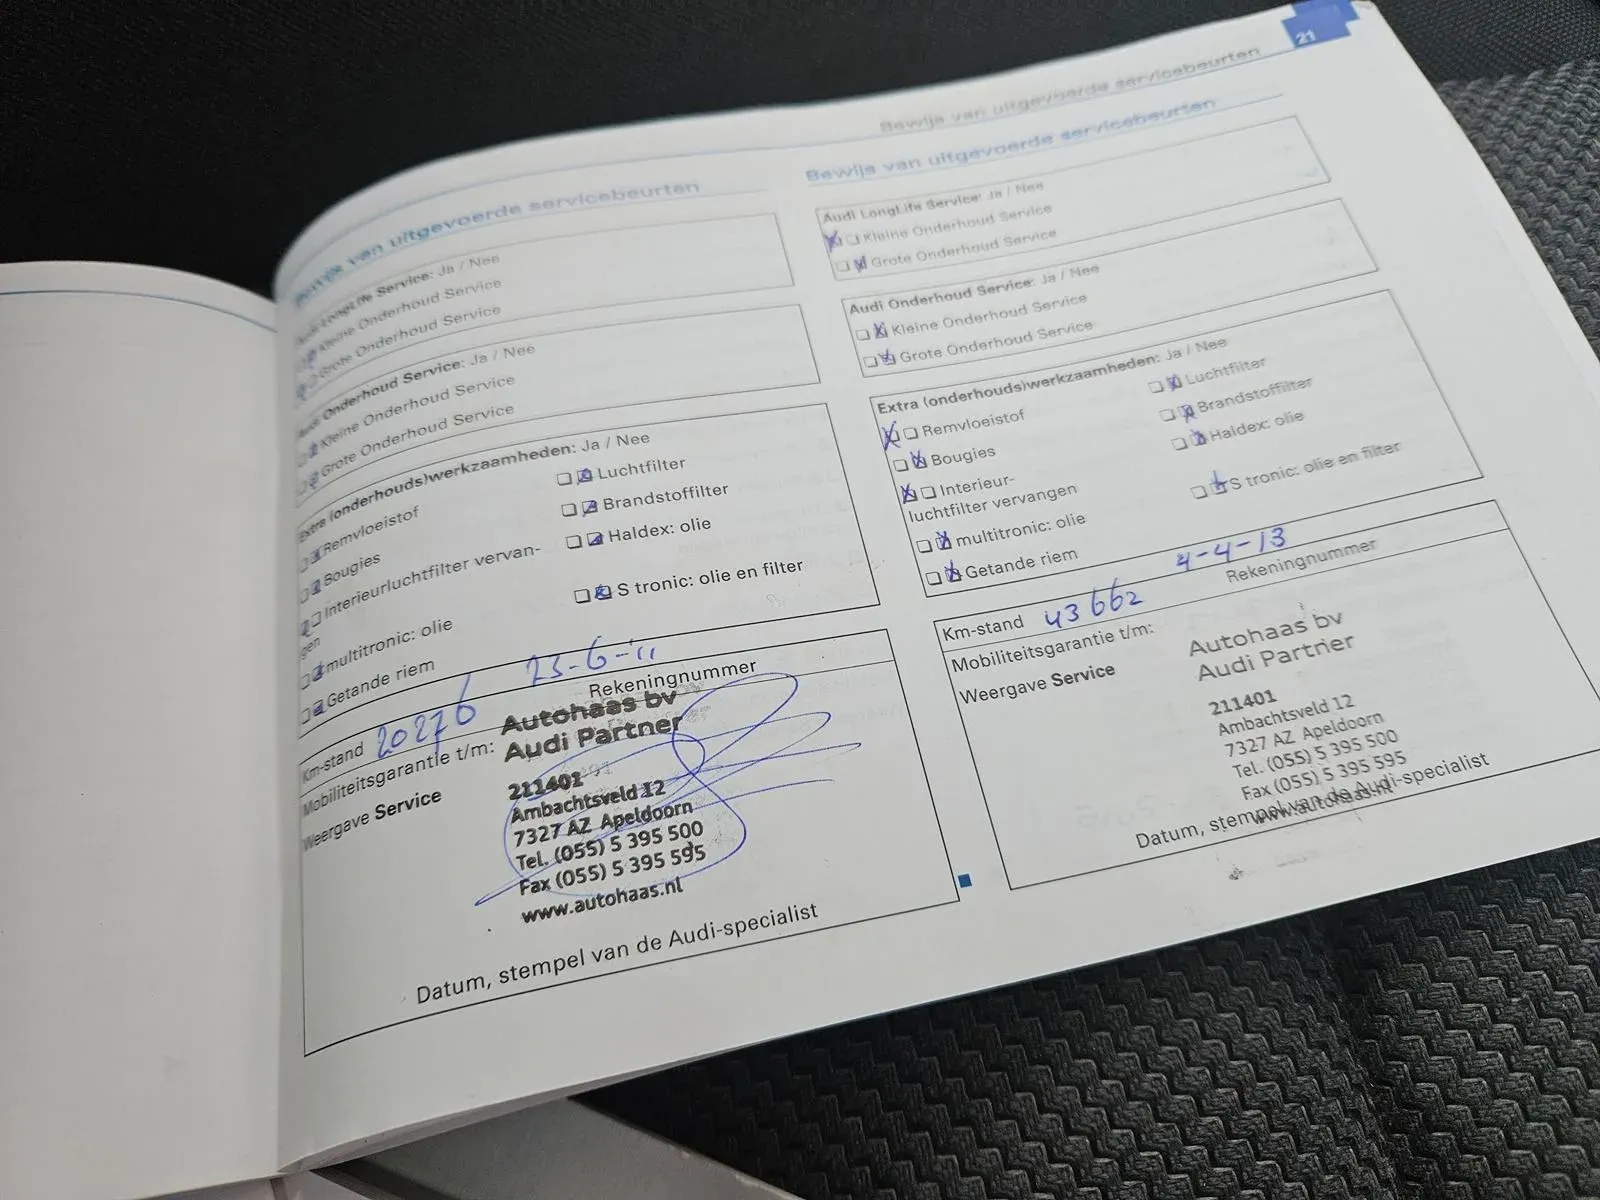 21
Bewijs van uitgevoerde servicebeurten
Bewijs van uitgevoerde servicebeurten
Audi LongLife Service: Ja / Nee
Kleine Onderhoud Service
Grote Onderhoud Service
Audi Onderhoud Service: Ja / Nee
Kleine Onderhoud Service
Grote Onderhoud Service
Extra (onderhouds)werkzaamheden: Ja / Nee
Remvloeistof
Luchtfilter
Bougies
Brandstoffilter
Interieurluchtfilter vervan-
gen
Haldex: olie
multitronic: olie
S tronic: olie en filter
Getande riem
23-6-11
Km-stand 20276
Rekeningnummer
Mobiliteitsgarantie t/m:
Weergave Service
Autohaas bv
Audi Partner
211401
Ambachtsveld 12
7327 AZ Apeldoorn
Tel. (055) 5 395 500
Fax (055) 5 395 595
www.autohaas.nl
Datum, stempel van de Audi-specialist
Bewijs van uitgevoerde servicebeurten
Audi LongLife Service: Ja / Nee
Kleine Onderhoud Service
Grote Onderhoud Service
Audi Onderhoud Service: Ja / Nee
Kleine Onderhoud Service
Grote Onderhoud Service
Extra (onderhouds)werkzaamheden: Ja / Nee
Remvloeistof
Luchtfilter
Bougies
Brandstoffilter
Interieur-
luchtfilter vervangen
Haldex: olie
multitronic: olie
S tronic: olie en filter
Getande riem
4-4-13
Km-stand 43662
Rekeningnummer
Mobiliteitsgarantie t/m:
Weergave Service
Autohaas bv
Audi Partner
211401
Ambachtsveld 12
7327 AZ Apeldoorn
Tel. (055) 5 395 500
Fax (055) 5 395 595
www.autohaas.nl
Datum, stempel van de Audi-specialist